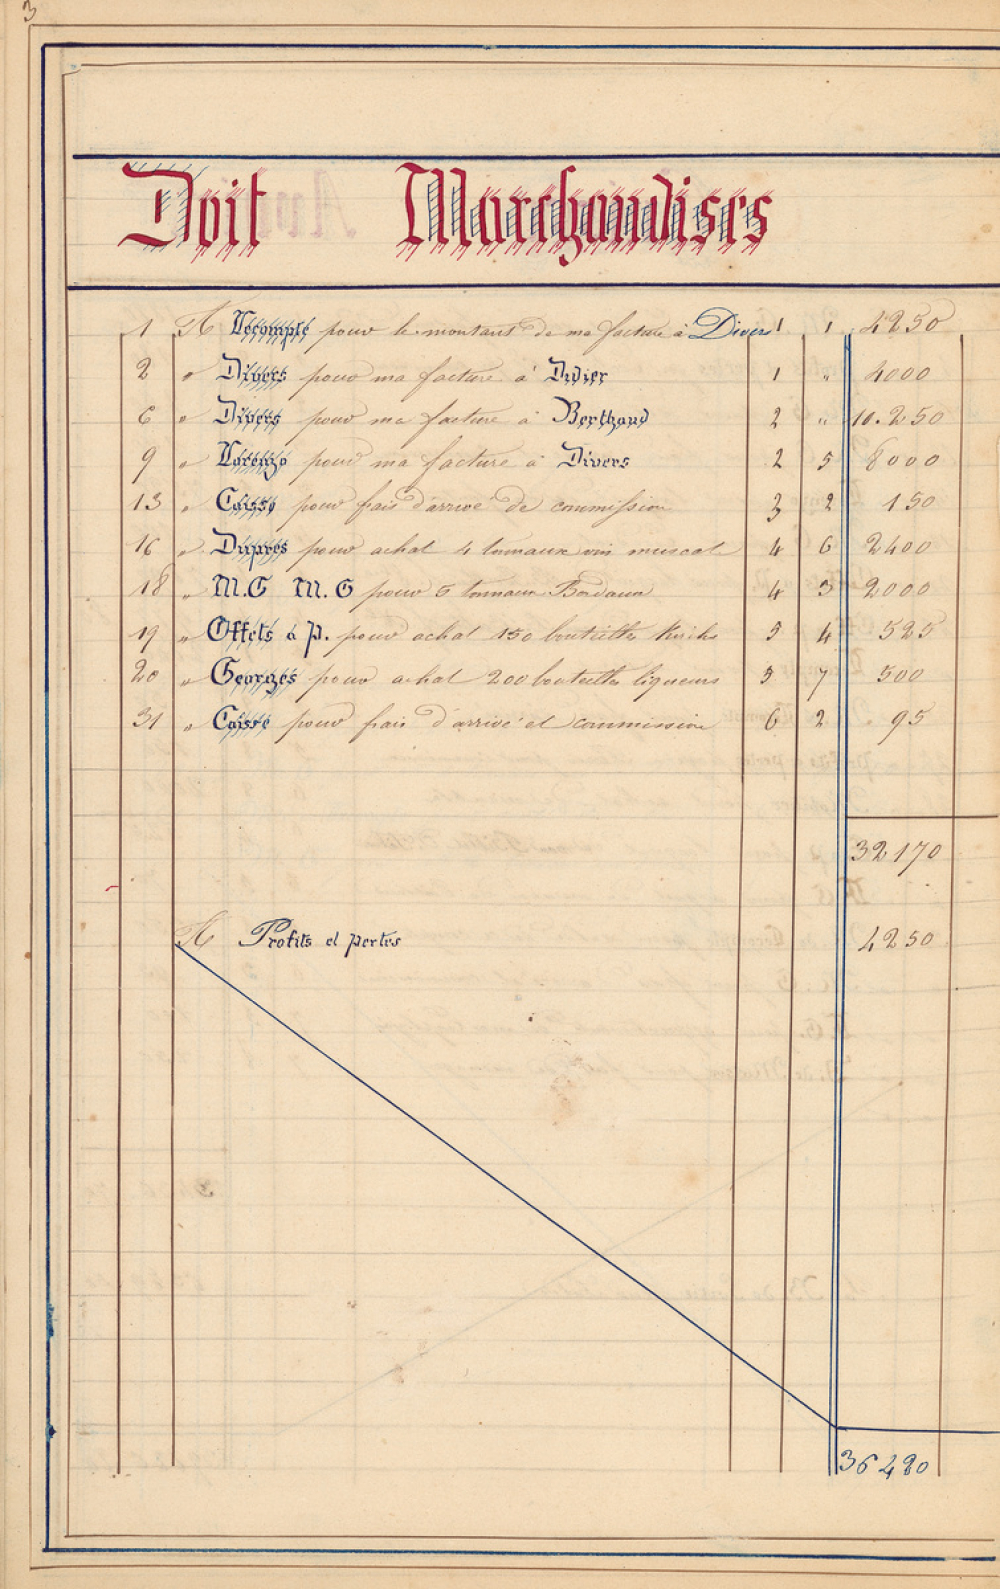 3
Doit Marchandises
1 A Lecompte pour le montant de ma facture à Divers 1 1 4250
2 " Divers pour ma facture à Didier 1 " 4000
6 " Divers pour ma facture à Berthaud 2 " 10.250
9 " Lorenzo pour ma facture à Divers 2 5 8000
13 " Caisse pour frais d'arrivé de commission 3 2 150
16 " Duprès pour achat 4 tonnaux vin muscat 4 6 2400
18 " M.G M.G pour 5 tonnaux Bordaux 4 3 2000
19 " Effets à P. pour achat 150 bouteilles Kirchs 5 4 525
20 " Georges pour achat 200 bouteilles liqueurs 5 7 500
31 " Caisse pour frais d'arrivé et commission 6 2 95
32170
A Profits et pertes 4250
36420